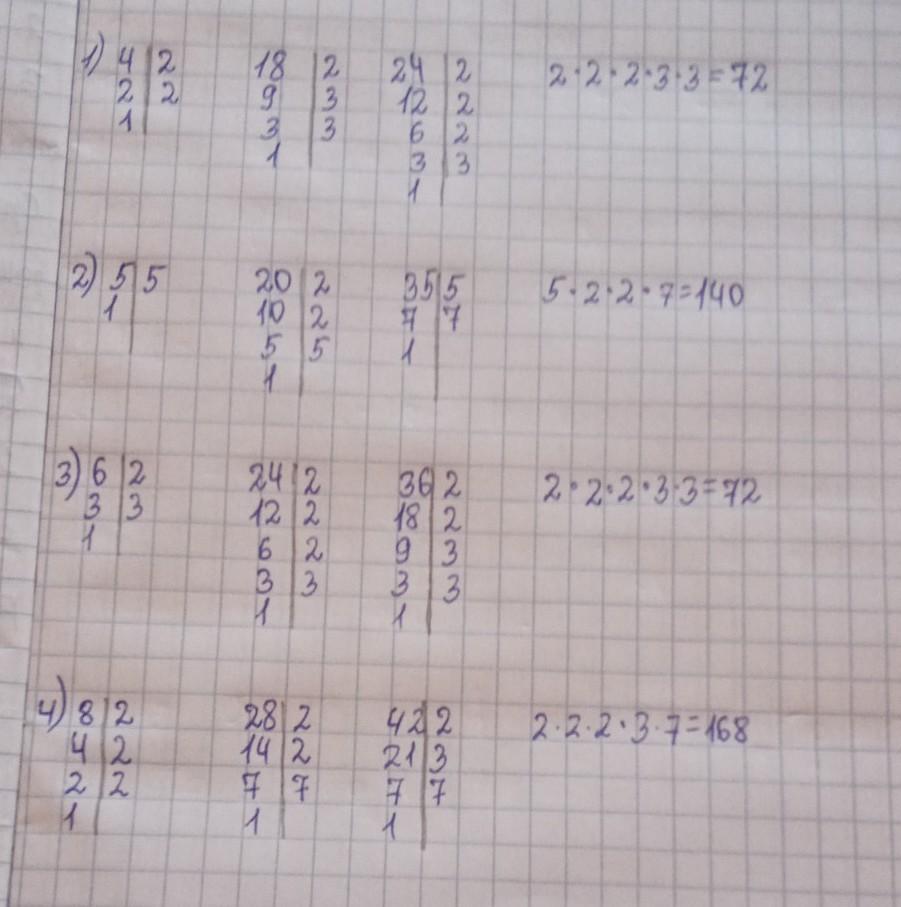 1) 4 | 2 18 | 2 24 | 2 2·2·2·3·3=72
2 | 2 9 | 3 12 | 2
1 | 3 | 3 6 | 2
1 | 3 | 3
1 |
2) 5 | 5 20 | 2 35 | 5 5·2·2·7=140
1 | 10 | 2 7 | 7
5 | 5 1 |
1 |
3) 6 | 2 24 | 2 36 | 2 2·2·2·3·3=72
3 | 3 12 | 2 18 | 2
1 | 6 | 2 9 | 3
3 | 3 3 | 3
1 | 1 |
4) 8 | 2 28 | 2 42 | 2 2·2·2·3·7=168
4 | 2 14 | 2 21 | 3
2 | 2 7 | 7 7 | 7
1 | 1 | 1 |